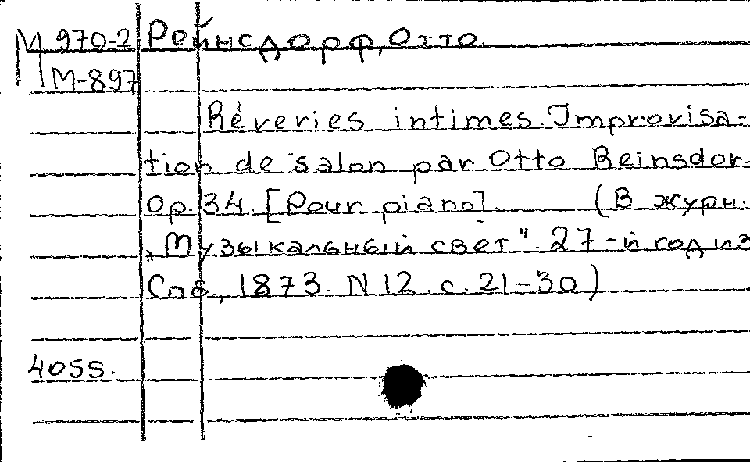 М 970-2 Рейнсдорф, Отто.
М-897
Rêveries intimes. Improvisa-
tion de salon par Otto Reinsdor
Op. 34. [Pour piano]. (В журн.
„Музыкальный свет". 27-й год изд
Спб, 1873. N 12. с. 21-30)
4055.